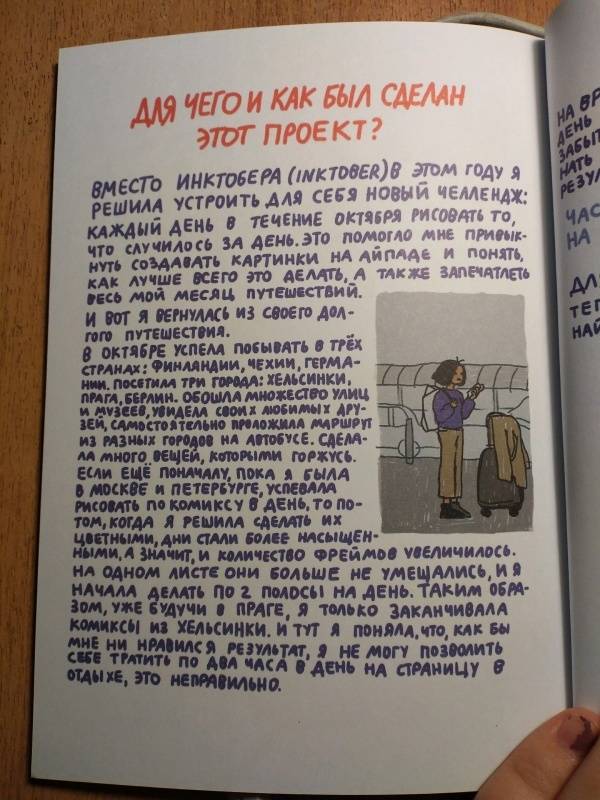 ДЛЯ ЧЕГО И КАК БЫЛ СДЕЛАН
ЭТОТ ПРОЕКТ?
ВМЕСТО ИНКТОБЕРА (INKTOBER) В ЭТОМ ГОДУ Я
РЕШИЛА УСТРОИТЬ ДЛЯ СЕБЯ НОВЫЙ ЧЕЛЛЕНДЖ:
КАЖДЫЙ ДЕНЬ В ТЕЧЕНИЕ ОКТЯБРЯ РИСОВАТЬ ТО,
ЧТО СЛУЧИЛОСЬ ЗА ДЕНЬ. ЭТО ПОМОГЛО МНЕ ПРИВЫК-
НУТЬ СОЗДАВАТЬ КАРТИНКИ НА АЙПАДЕ И ПОНЯТЬ,
КАК ЛУЧШЕ ВСЕГО ЭТО ДЕЛАТЬ, А ТАКЖЕ ЗАПЕЧАТЛЕТЬ
ВЕСЬ МОЙ МЕСЯЦ ПУТЕШЕСТВИЙ.
И ВОТ Я ВЕРНУЛАСЬ ИЗ СВОЕГО ДОЛ-
ГОГО ПУТЕШЕСТВИЯ.
В ОКТЯБРЕ УСПЕЛА ПОБЫВАТЬ В ТРЁХ
СТРАНАХ: ФИНЛАНДИИ, ЧЕХИИ, ГЕРМА-
НИИ. ПОСЕТИЛА ТРИ ГОРОДА: ХЕЛЬСИНКИ,
ПРАГА, БЕРЛИН. ОБОШЛА МНОЖЕСТВО УЛИЦ
И МУЗЕЕВ, УВИДЕЛА СВОИХ ЛЮБИМЫХ ДРУ-
ЗЕЙ, САМОСТОЯТЕЛЬНО ПРОЛОЖИЛА МАРШРУТ
ИЗ РАЗНЫХ ГОРОДОВ НА АВТОБУСЕ. СДЕЛА-
ЛА МНОГО ВЕЩЕЙ, КОТОРЫМИ ГОРЖУСЬ.
ЕСЛИ ЕЩЁ ПОНАЧАЛУ, ПОКА Я БЫЛА
В МОСКВЕ И ПЕТЕРБУРГЕ, УСПЕВАЛА
РИСОВАТЬ ПО КОМИКСУ В ДЕНЬ, ТО ПО-
ТОМ, КОГДА Я РЕШИЛА СДЕЛАТЬ ИХ
ЦВЕТНЫМИ, ДНИ СТАЛИ БОЛЕЕ НАСЫЩЕН-
НЫМИ, А ЗНАЧИТ, И КОЛИЧЕСТВО ФРЕЙМОВ УВЕЛИЧИЛОСЬ.
НА ОДНОМ ЛИСТЕ ОНИ БОЛЬШЕ НЕ УМЕЩАЛИСЬ, И Я
НАЧАЛА ДЕЛАТЬ ПО 2 ПОЛОСЫ НА ДЕНЬ. ТАКИМ ОБРА-
ЗОМ, УЖЕ БУДУЧИ В ПРАГЕ, Я ТОЛЬКО ЗАКАНЧИВАЛА
КОМИКСЫ ИЗ ХЕЛЬСИНКИ. И ТУТ Я ПОНЯЛА, ЧТО, КАК БЫ
МНЕ НИ НРАВИЛСЯ РЕЗУЛЬТАТ, Я НЕ МОГУ ПОЗВОЛИТЬ
СЕБЕ ТРАТИТЬ ПО ДВА ЧАСА В ДЕНЬ НА СТРАНИЦУ В
ОТДЫХЕ, ЭТО НЕПРАВИЛЬНО.
НА ВР
ДЕНЬ
ЗАБЫТ
НАТЬ
РЕЗУЛ
ЧАС
НА
ДЛ
ТЕГ
НАЙ